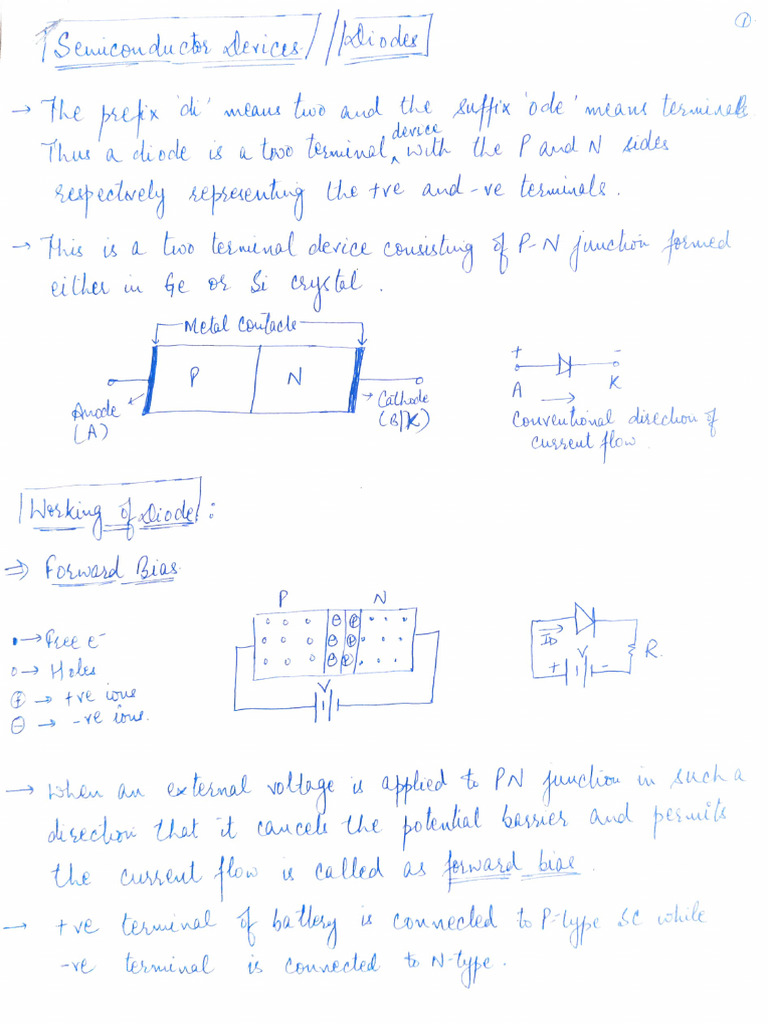 ①
Semiconductor Devices // Diodes
→ The prefix 'di' means two and the suffix 'ode' means terminals
Thus a diode is a two terminal device with the P and N sides
respectively representing the +ve and -ve terminals.
→ This is a two terminal device consisting of P-N junction formed
either in Ge or Si crystal.
Metal contacts
P N
Anode
(A)
Cathode
(B/K)
+ -
A K
→
Conventional direction of
current flow
Working of Diode:
⇒ Forward Bias
• → Free e-
o → Holes
⊕ → +ve ions
⊖ → -ve ions.
P N
⊖ ⊕
⊖ ⊕
⊖ ⊕
V
ID
+ V -
R.
→ When an external voltage is applied to PN junction in such a
direction that it cancels the potential barrier and permits
the current flow is called as forward bias.
→ +ve terminal of battery is connected to P-type SC while
-ve terminal is connected to N-type.